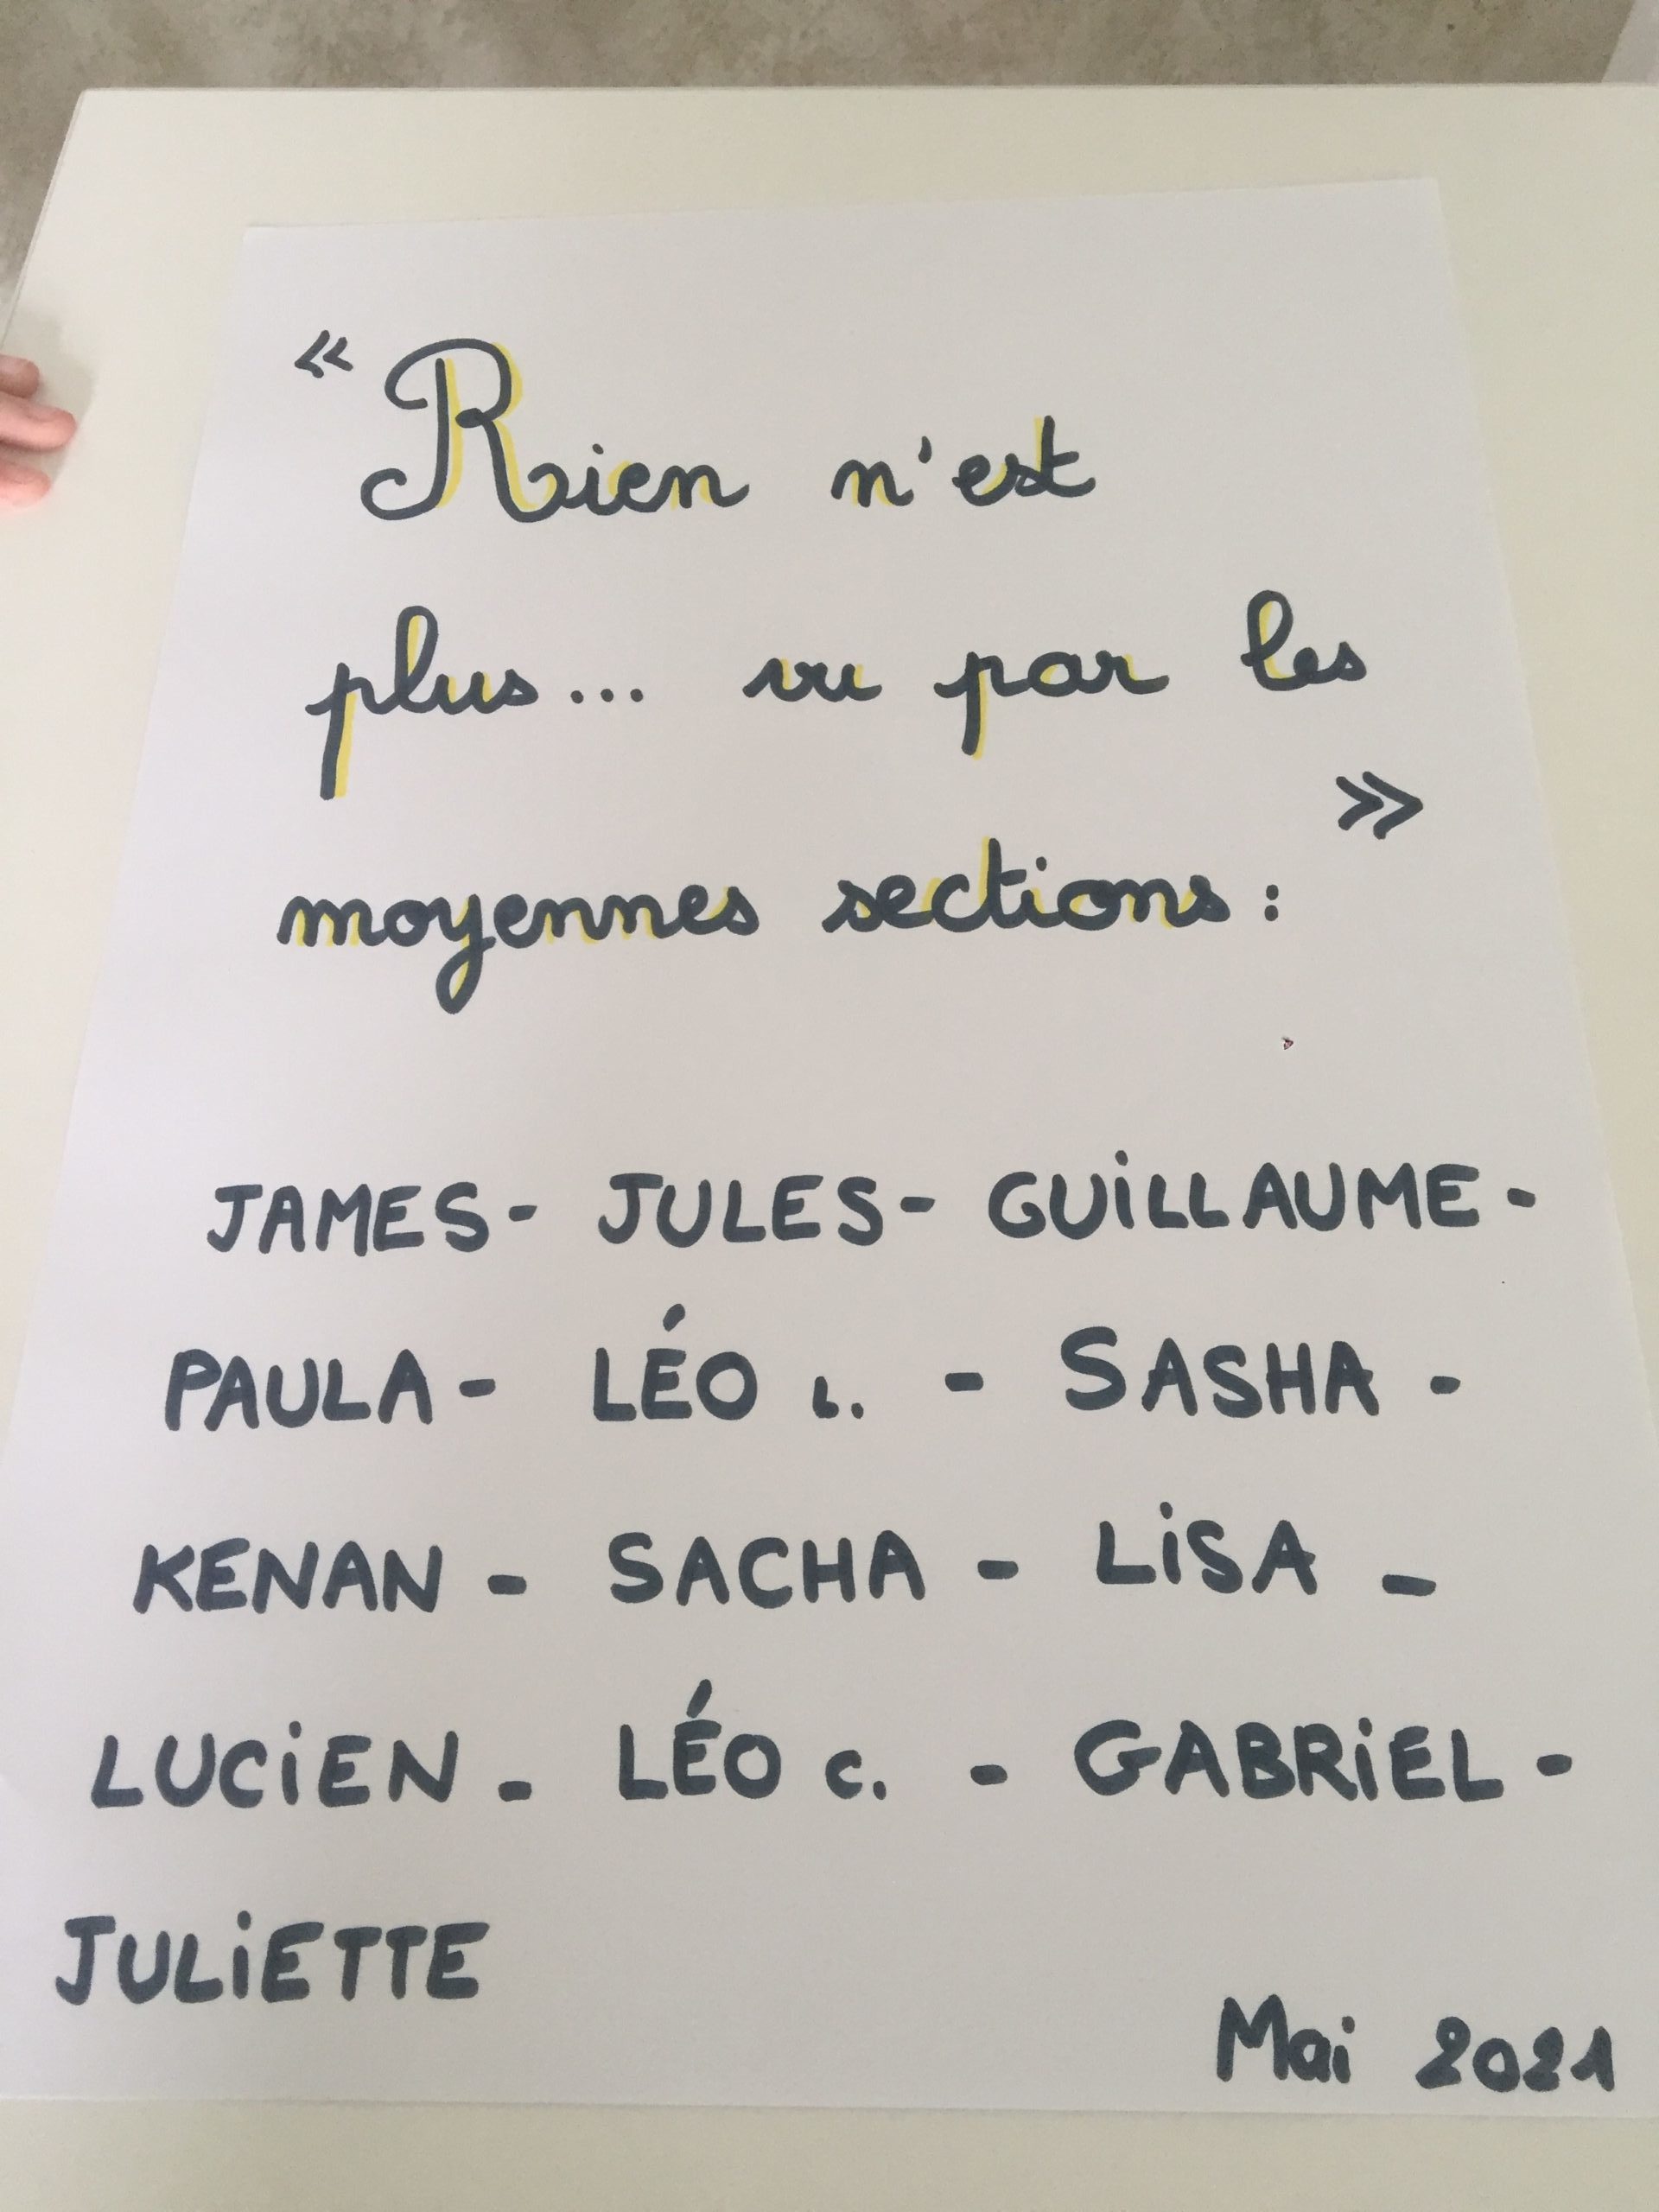 « Rien n'est
plus... vu par les
moyennes sections : »
JAMES - JULES - GUiLLAUME -
PAULA - LÉO L. - SASHA -
KENAN - SACHA - LiSA -
LUCiEN - LÉO C. - GABRiEL -
JULiETTE
Mai 2021